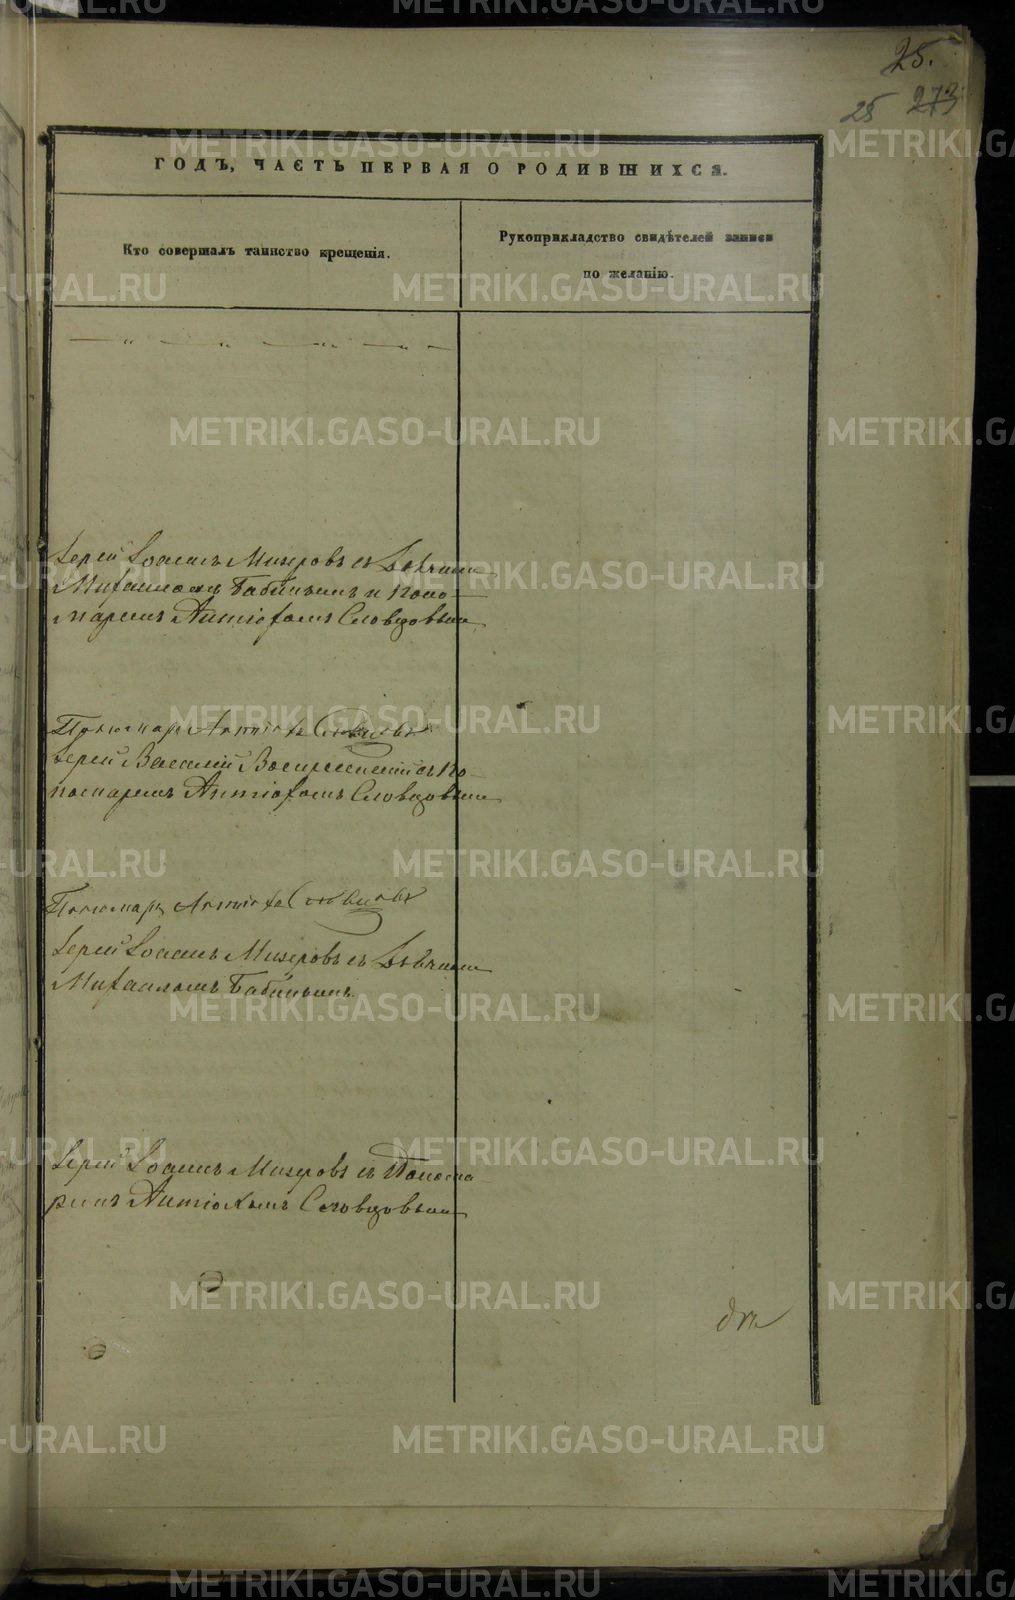 25.
25 273
ГОДЪ, ЧАСТЬ ПЕРВАЯ О РОДИВШИХСЯ.
Кто совершалъ таинство крещенія.
Рукоприкладство свидѣтелей записи
по желанію.
Іерей Іоаннъ Мизеровъ съ Дьячкомъ
Михаиломъ Бабинымъ и Поно-
маремъ Антіохомъ Словцовымъ
Пономарь Антіохъ Словцовъ
Іерей Василій Воскресенскій съ По-
номаремъ Антіохомъ Словцовымъ
Пономарь Антіохъ Словцовъ
Іерей Іоаннъ Мизеровъ съ Дьячкомъ
Михаиломъ Бабинымъ.
Іерей Іоаннъ Мизеровъ съ Понома-
ремъ Антіохомъ Словцовымъ
METRIKI.GASO-URAL.RU